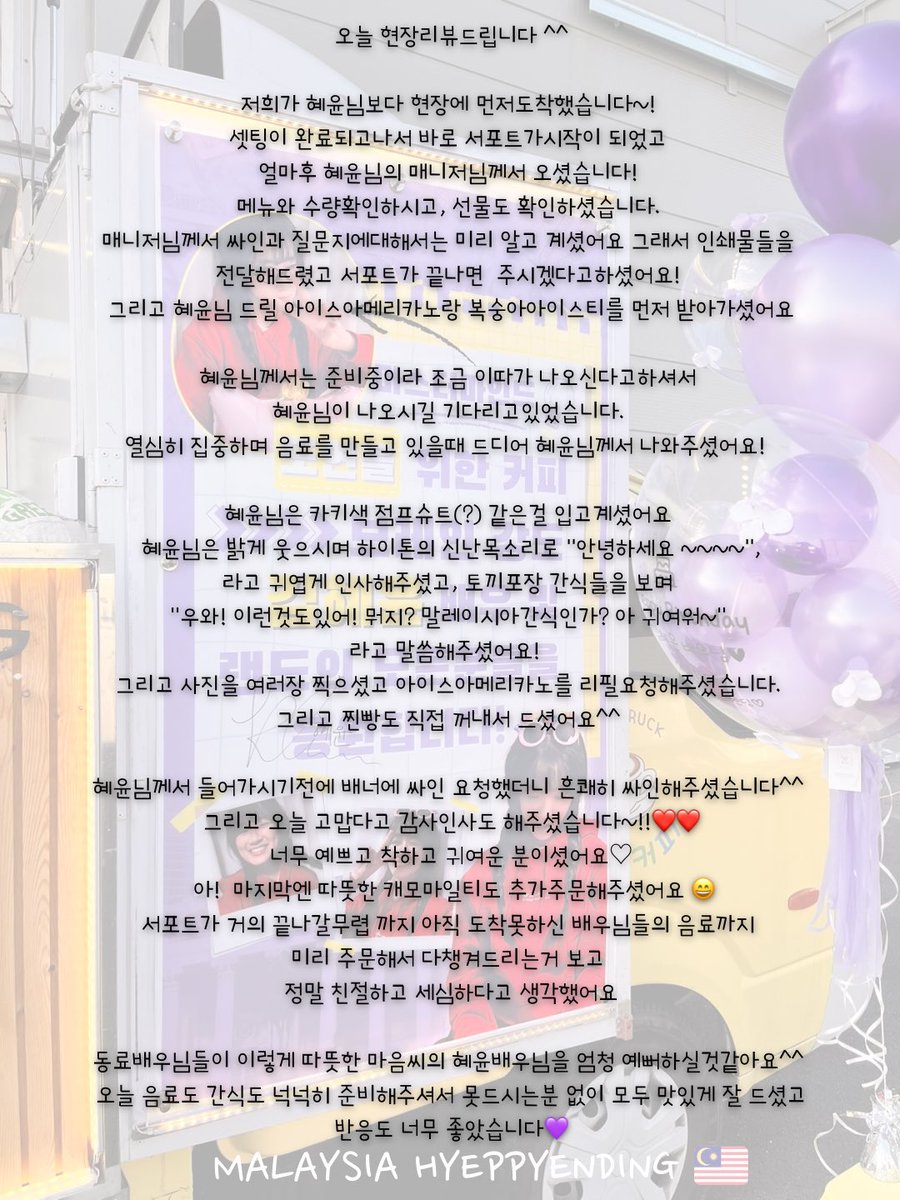 오늘 현장리뷰드립니다 ^^
저희가 혜윤님보다 현장에 먼저도착했습니다~!
셋팅이 완료되고나서 바로 서포트가시작이 되었고
얼마후 혜윤님의 매니저님께서 오셨습니다!
메뉴와 수량확인하시고, 선물도 확인하셨습니다.
매니저님께서 싸인과 질문지에대해서는 미리 알고 계셨어요 그래서 인쇄물들을
전달해드렸고 서포트가 끝나면 주시겠다고하셨어요!
그리고 혜윤님 드릴 아이스아메리카노랑 복숭아아이스티를 먼저 받아가셨어요
혜윤님께서는 준비중이라 조금 이따가 나오신다고하셔서
혜윤님이 나오시길 기다리고있었습니다.
열심히 집중하며 음료를 만들고 있을때 드디어 혜윤님께서 나와주셨어요!
혜윤님은 카키색 점프슈트(?) 같은걸 입고계셨어요
혜윤님은 밝게 웃으시며 하이톤의 신난목소리로 "안녕하세요 ~~~~",
라고 귀엽게 인사해주셨고, 토끼포장 간식들을 보며
"우와! 이런것도있어! 뭐지? 말레이시아간식인가? 아 귀여워~"
라고 말씀해주셨어요!
그리고 사진을 여러장 찍으셨고 아이스아메리카노를 리필요청해주셨습니다.
그리고 찐빵도 직접 꺼내서 드셨어요^^
혜윤님께서 들어가시기전에 배너에 싸인 요청했더니 흔쾌히 싸인해주셨습니다^^
그리고 오늘 고맙다고 감사인사도 해주셨습니다~!!❤️❤️
너무 예쁘고 착하고 귀여운 분이셨어요♡
아! 마지막엔 따뜻한 캐모마일티도 추가주문해주셨어요 😄
서포트가 거의 끝나갈무렵 까지 아직 도착못하신 배우님들의 음료까지
미리 주문해서 다챙겨드리는거 보고
정말 친절하고 세심하다고 생각했어요
동료배우님들이 이렇게 따뜻한 마음씨의 혜윤배우님을 엄청 예뻐하실것같아요^^
오늘 음료도 간식도 넉넉히 준비해주셔서 못드시는분 없이 모두 맛있게 잘 드셨고
반응도 너무 좋았습니다💜
MALAYSIA HYEPPYENDING 🇲🇾
위한 커피
RUCK